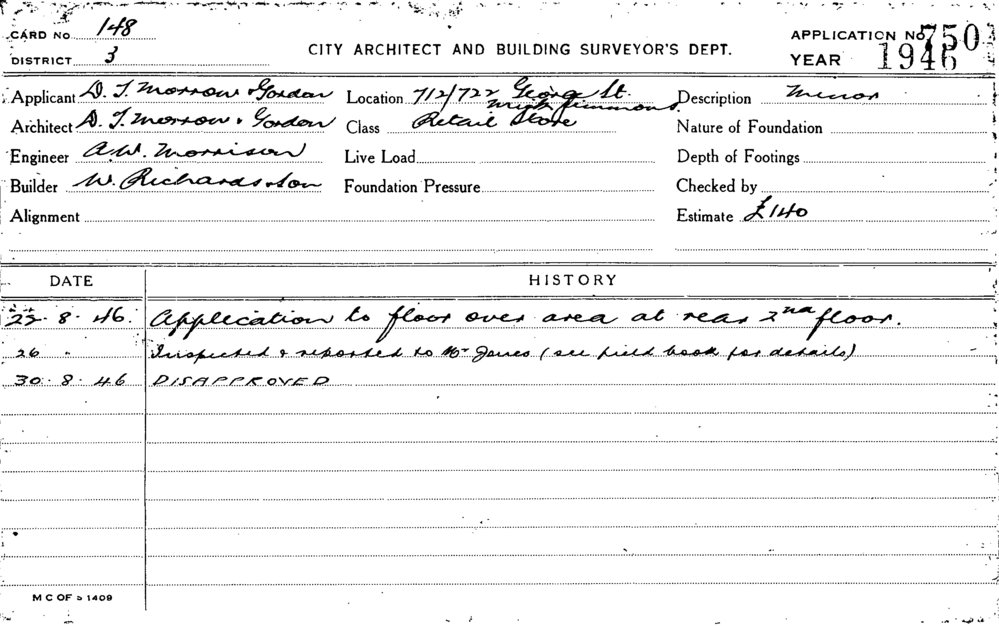 CARD No 148
DISTRICT 3
CITY ARCHITECT AND BUILDING SURVEYOR'S DEPT.
APPLICATION No 750
YEAR 1946
Applicant D. T. Morrow & Gordon
Location 712/722 George St.
Mick Simmons
Description Minor
Architect D. T. Morrow & Gordon
Class Retail Store
Nature of Foundation
Engineer A. W. Morrison
Live Load
Depth of Footings
Builder W. Richards & Son
Foundation Pressure
Checked by
Alignment
Estimate £140
DATE HISTORY
8 . 46. Application to floor over area at rear 2nd floor.
26 " Inspected & reported to Mr Jones (see field book for details)
30 . 8 . 46 DISAPPROVED
M C OF S 1409